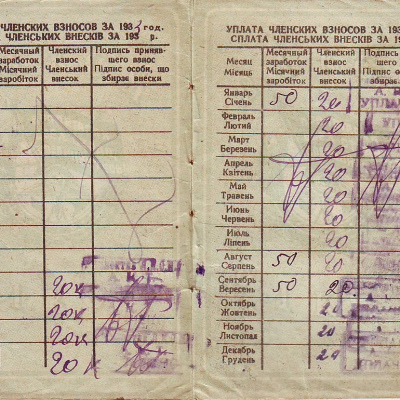 ЧЛЕНСКИХ ВЗНОСОВ ЗА 193 год.
ЧЛЕНСЬКИХ ВНЕСКІВ ЗА 193 р.
Месячный заработок
Місячний заробіток
Членский взнос
Членський внесок
Подпись принявшего взнос
Підпис особи, що збирає внески
20к
20к
20к
20 к
УПЛАТА ЧЛЕНСКИХ ВЗНОСОВ ЗА 193
СПЛАТА ЧЛЕНСЬКИХ ВНЕСКІВ ЗА 19
Месяц
Місяць
Месячный заработок
Місячний заробіток
Членский взнос
Членський внесок
Подпись
шего
Підпис
збирає
Январь
Січень 50 20
Февраль
Лютий 20
Март
Березень 20
Апрель
Квітень 20
Май
Травень 20
Июнь
Червень 20
Июль
Липень 20
Август
Серпень 50 20
Сентябрь
Вересень 50 20
Октябрь
Жовтень 20
Ноябрь
Листопад 20
Декабрь
Грудень 20